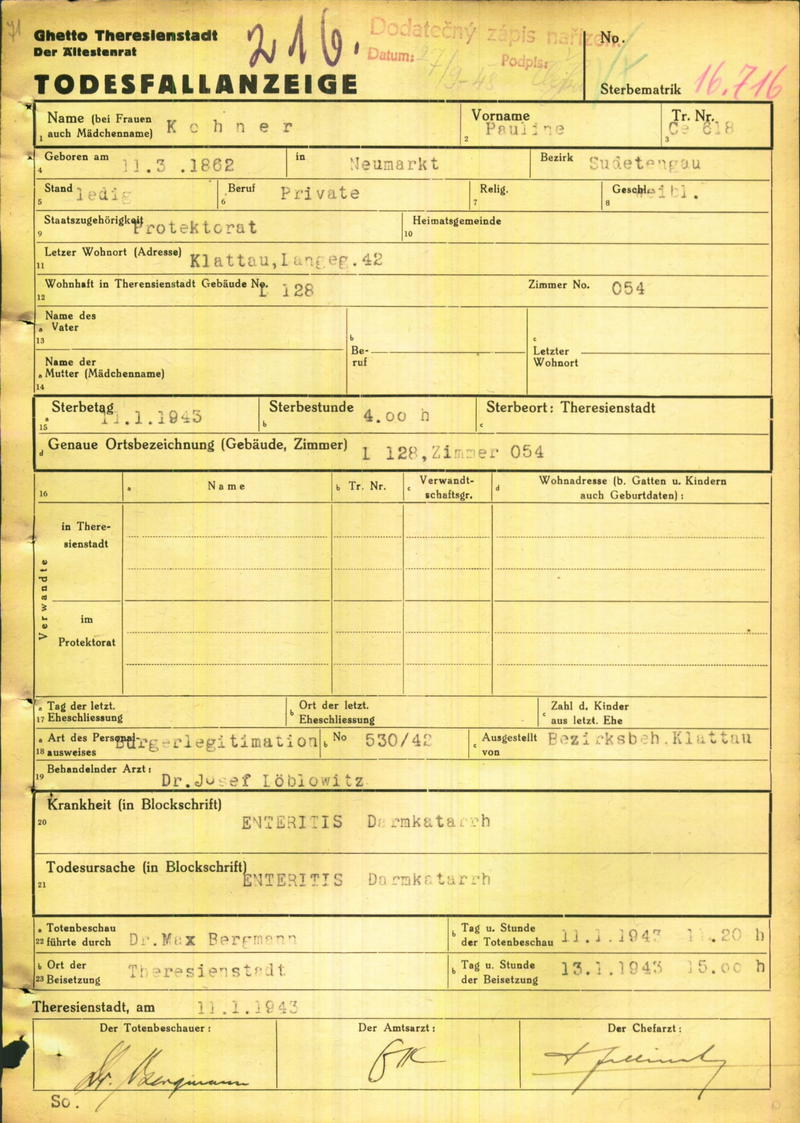 71
Ghetto Theresienstadt
Der Ältestenrat
TODESFALLANZEIGE
216.
Dodatečný zápis nařízen
Datum:
Podpis:
No.
Sterbematrik 16.716
Name (bei Frauen auch Mädchenname) 1 Kohner
Vorname 2 Pauline
Tr. Nr. 3 Ce 618
Geboren am 4 11.3.1862
in Neumarkt
Bezirk Sudetengau
Stand 5 ledig
Beruf 6 Private
Relig. 7
Geschl. 8 weibl.
Staatszugehörigkeit 9 Protektorat
Heimatsgemeinde 10
Letzer Wohnort (Adresse) 11 Klattau, Langeg.42
Wohnhaft in Therensienstadt Gebäude No. 12 L 128
Zimmer No. 054
Name des a Vater 13
Name der a Mutter (Mädchenname) 14
b Be-ruf
c Letzter Wohnort
Sterbetag a 15 11.1.1943
Sterbestunde b 4.00 h
Sterbeort: Theresienstadt c
d Genaue Ortsbezeichnung (Gebäude, Zimmer) L 128, Zimmer 054
16 a Name
b Tr. Nr.
c Verwandt-schaftsgr.
d Wohnadresse (b. Gatten u. Kindern auch Geburtdaten):
Verwandte
in There-sienstadt
im Protektorat
a Tag der letzt. 17 Eheschliessung
b Ort der letzt. Eheschliessung
c Zahl d. Kinder aus letzt. Ehe
a Art des Personal-18 ausweises Bürgerlegitimation
b No 530/42
c Ausgestellt von Bezirksbeh.Klattau
19 Behandelnder Arzt: Dr.Josef Löblowitz
Krankheit (in Blockschrift)
20 ENTERITIS Darmkatarrh
Todesursache (in Blockschrift)
21 ENTERITIS Darmkatarrh
a Totenbeschau 22 führte durch Dr.Max Bergmann
b Tag u. Stunde der Totenbeschau 11.1.1943 .20 h
b Ort der 23 Beisetzung Theresienstadt
b Tag u. Stunde der Beisetzung 13.1.1943 15.00 h
Theresienstadt, am 11.1.1943
Der Totenbeschauer:
Der Amtsarzt:
Der Chefarzt:
Dr. Bergmann
So.